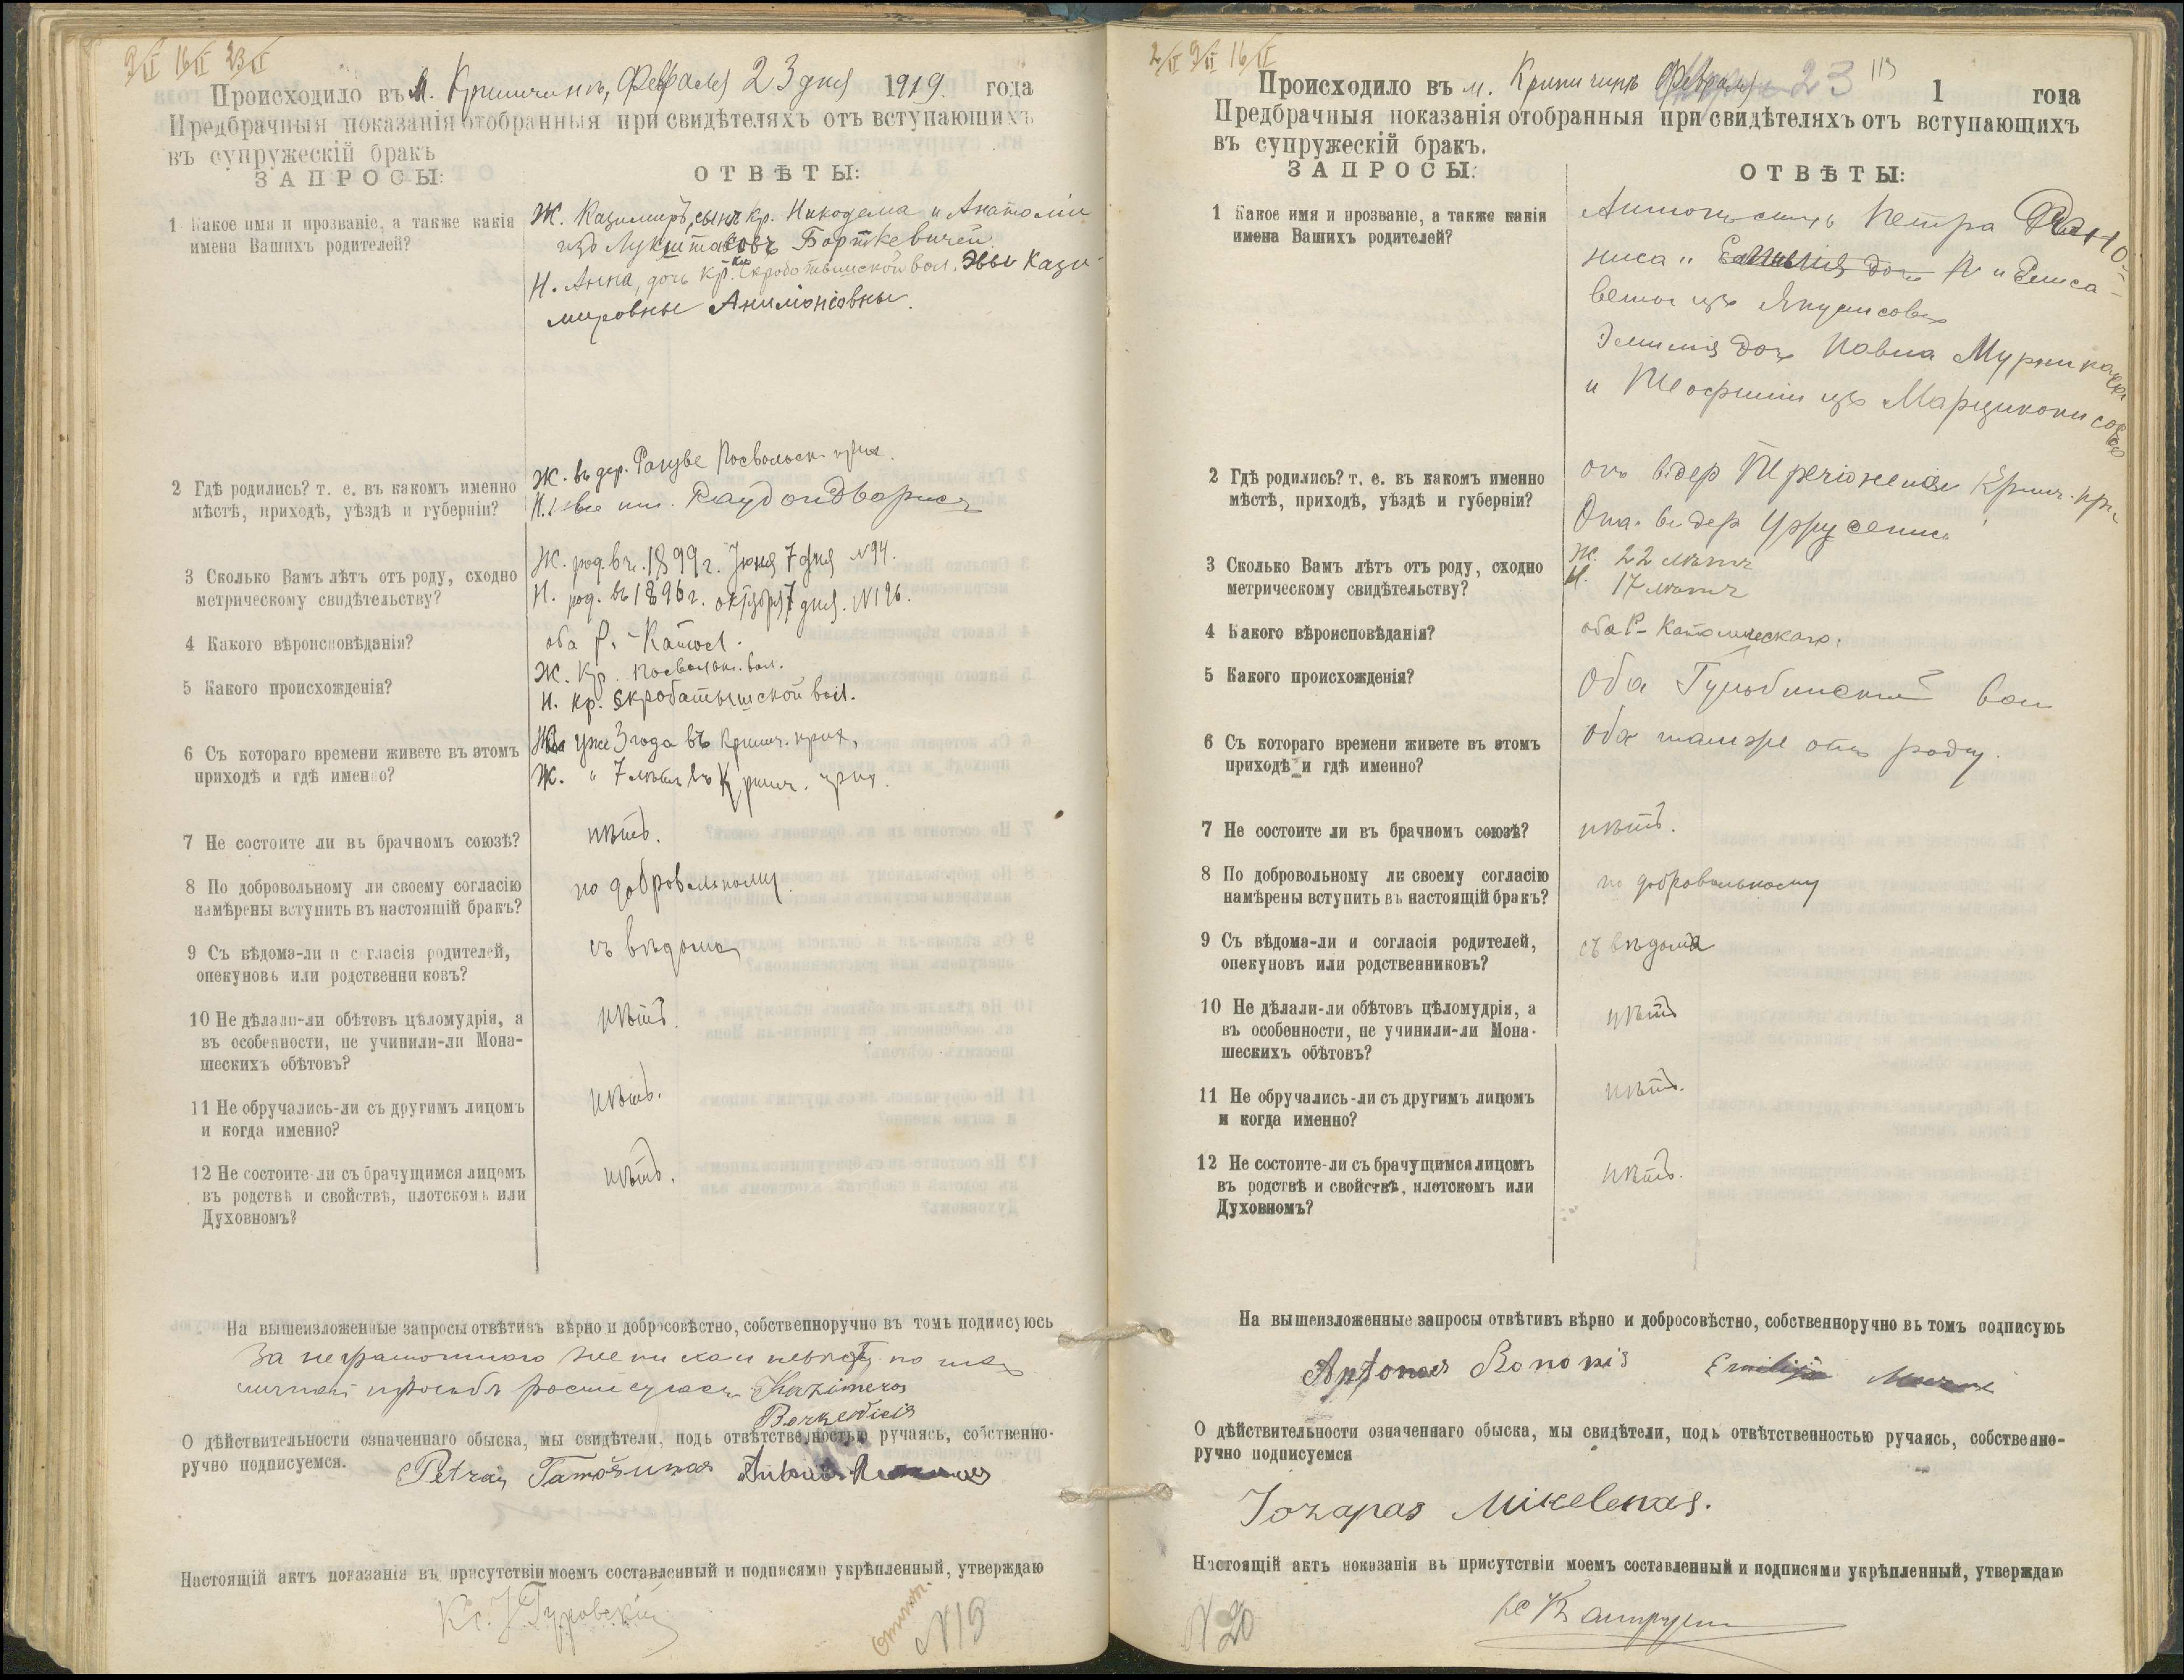 9/II 16/II 23/II
Происходило въ м. Кринчинъ, Февраля 23 дня 1919 года
Предбрачныя показанія отобранныя при свидѣтеляхъ отъ вступающихъ
въ супружескій бракъ
ЗАПРОСЫ:
ОТВѢТЫ:
1 Какое имя и прозваніе, а также какія
имена Вашихъ родителей?
Ж. Казимиръ, сынъ кр. Никодема и Анатоліи
изъ Лукштасовъ Борткевичей
Н. Анна, дочь кр-ки Скробатышской вол. Эвы Кази-
мировны Анимонсовны.
2 Гдѣ родились? т. е. въ какомъ именно
мѣстѣ, приходѣ, уѣздѣ и губерніи?
Ж. въ дер. Посвольск. прих.
3 Сколько Вамъ лѣтъ отъ роду, сходно
метрическому свидѣтельству?
Ж. род. въ 1899 г. Іюня 7 дня №94.
Н. род. въ 1896 г. октября 7 дня. №196.
4 Какого вѣроисповѣданія?
оба Р.-Катол.
5 Какого происхожденія?
Ж. Кр. Посвольск. вол.
Н. кр. Скробатышской вол.
6 Съ котораго времени живете въ этомъ
приходѣ и гдѣ именно?
уже 3 года въ Кринч. прих,
Ж. " 7 лѣтъ въ Кринч. прих.
7 Не состоите ли въ брачномъ союзѣ?
нѣтъ.
8 По добровольному ли своему согласію
намѣрены вступить въ настоящій бракъ?
по добровольному.
9 Съ вѣдома-ли и согласія родителей,
опекуновъ или родственниковъ?
съ вѣдома
10 Не дѣлали-ли обѣтовъ цѣломудрія, а
въ особенности, не учинили-ли Мона-
шескихъ обѣтовъ?
нѣтъ.
11 Не обручались-ли съ другимъ лицомъ
и когда именно?
нѣтъ.
12 Не состоите-ли съ брачущимся лицомъ
въ родствѣ и свойствѣ, плотскомъ или
Духовномъ?
нѣтъ.
На вышеизложенные запросы отвѣтивъ вѣрно и добросовѣстно, собственноручно въ томъ подписуюсь
За неграмотного жениха и невѣсту по ихъ
личной просьбѣ росписуюсь Kazimeras
О дѣйствительности означеннаго обыска, мы свидѣтели, подъ отвѣтственностью ручаясь, собственно-
ручно подписуемся.
Petras Tamošunas
Настоящій актъ показанія въ присутствіи моемъ составленный и подписями укрѣпленный, утверждаю
Кс. Гуровскій
№19
2/II 9/II 16/II
113
Происходило въ м. Кринчинъ Февраля 23 1 года
Предбрачныя показанія отобранныя при свидѣтеляхъ отъ вступающихъ
въ супружескій бракъ.
ЗАПРОСЫ:
ОТВѢТЫ:
1 Какое имя и прозваніе, а также какія
имена Вашихъ родителей?
Антонъ сынъ Петра
ниса и Елиса-
веты изъ Якунисовъ
Эмилія дочь Павла
и Теофиліи изъ
2 Гдѣ родились? т. е. въ какомъ именно
мѣстѣ, приходѣ, уѣздѣ и губерніи?
онъ въ дер Кринч. при
Она въ дер
3 Сколько Вамъ лѣтъ отъ роду, сходно
метрическому свидѣтельству?
Ж. 22 лѣтъ
Н. 17 лѣтъ
4 Какого вѣроисповѣданія?
оба Р-Католическаго.
5 Какого происхожденія?
Оба Гульбинской вол
6 Съ котораго времени живете въ этомъ
приходѣ и гдѣ именно?
оба тамже отъ роду.
7 Не состоите ли въ брачномъ союзѣ?
нѣтъ.
8 По добровольному ли своему согласію
намѣрены вступить въ настоящій бракъ?
по добровольному
9 Съ вѣдома-ли и согласія родителей,
опекуновъ или родственниковъ?
съ вѣдома
10 Не дѣлали-ли обѣтовъ цѣломудрія, а
въ особенности, не учинили-ли Мона-
шескихъ обѣтовъ?
нѣтъ
11 Не обручались-ли съ другимъ лицомъ
и когда именно?
нѣтъ.
12 Не состоите-ли съ брачущимся лицомъ
въ родствѣ и свойствѣ, плотскомъ или
Духовномъ?
нѣтъ.
На вышеизложенные запросы отвѣтивъ вѣрно и добросовѣстно, собственноручно въ томъ подписуюь
Antonas Rononis Emilija
О дѣйствительности означеннаго обыска, мы свидѣтели, подъ отвѣтственностью ручаясь, собственно-
ручно подписуемся
Jozapas Mikelenas.
Настоящій актъ показанія въ присутствіи моемъ составленный и подписями укрѣпленный, утверждаю
№20